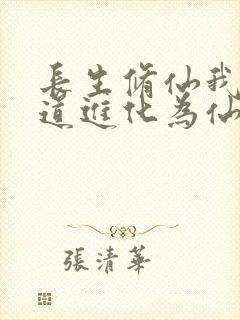 長生脩仙我
道進化為仙
張清華